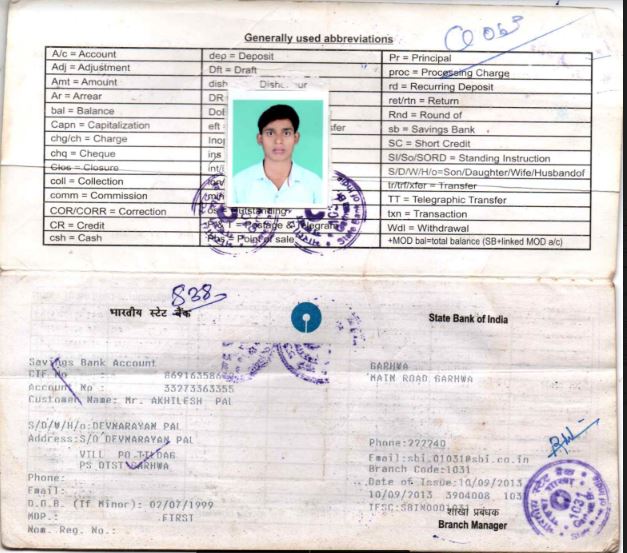 Generally used abbreviations
A/c = Account dep = Deposit Pr = Principal
Adj = Adjustment Dft = Draft proc = Processing Charge
Amt = Amount rd = Recurring Deposit
Ar = Arrear DR ret/rtn = Return
bal = Balance Rnd = Round of
Capn = Capitalization eft sb = Savings Bank
chg/ch = Charge SC = Short Credit
chq = Cheque ins SI/So/SORD = Standing Instruction
Clos = Closure S/D/W/H/o=Son/Daughter/Wife/Husbandof
coll = Collection tr/trf/xfer = Transfer
comm = Commission TT = Telegraphic Transfer
COR/CORR = Correction txn = Transaction
CR = Credit Wdl = Withdrawal
csh = Cash Point of sale +MOD bal=total balance (SB+linked MOD a/c)
838
भारतीय स्टेट बैंक State Bank of India
Savings Bank Account GARHWA
CIF No : MAIN ROAD GARHWA
Account No : 33273363355
Customer Name: Mr. AKHILESH PAL
S/D/W/H/o:DEVNARAYAN PAL
Address:S/O DEVNARAYAN PAL Phone:222240
VILL PO Email:sbi.01031@sbi.co.in
PS DIST GARHWA Branch Code:1031
Phone: Date of Issue:10/09/2013
Email: 10/09/2013 3904008
D.O.B. (If Minor): 02/07/1999
MOP.: FIRST शाखा प्रबंधक
Nom. Reg. No.: Branch Manager